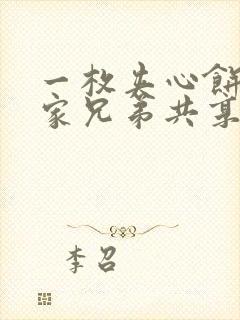 一枚夹心餅
家兄弟共
李召